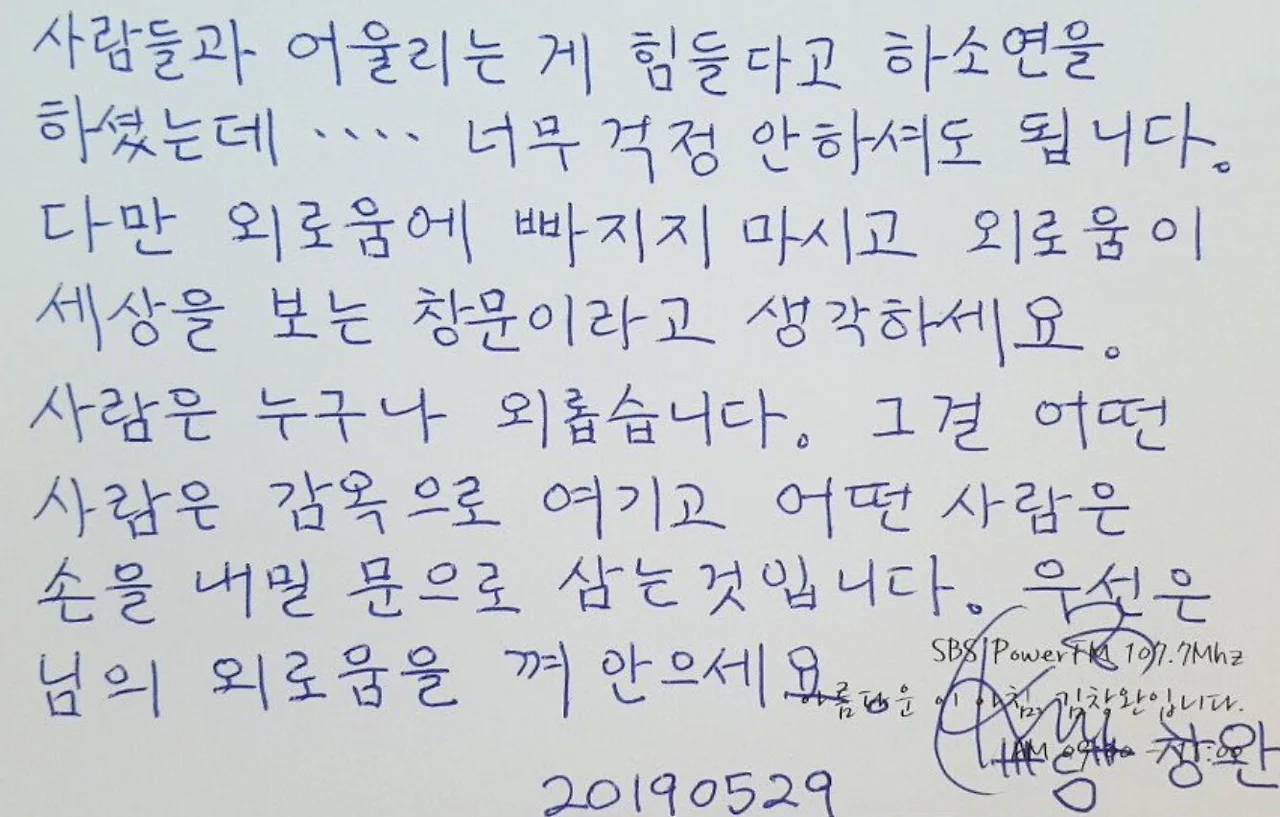 사람들과 어울리는 게 힘들다고 하소연을
하셨는데 ···· 너무 걱정 안하셔도 됩니다.
다만 외로움에 빠지지 마시고 외로움이
세상을 보는 창문이라고 생각하세요.
사람은 누구나 외롭습니다. 그걸 어떤
사람은 감옥으로 여기고 어떤 사람은
손을 내밀 문으로 삼는것입니다. 우선은
님의 외로움을 껴 안으세요
SBS PowerFM 107.7Mhz
아름다운 이 아침 김창완입니다.
AM 09:00 - 11:00
창완
20190529